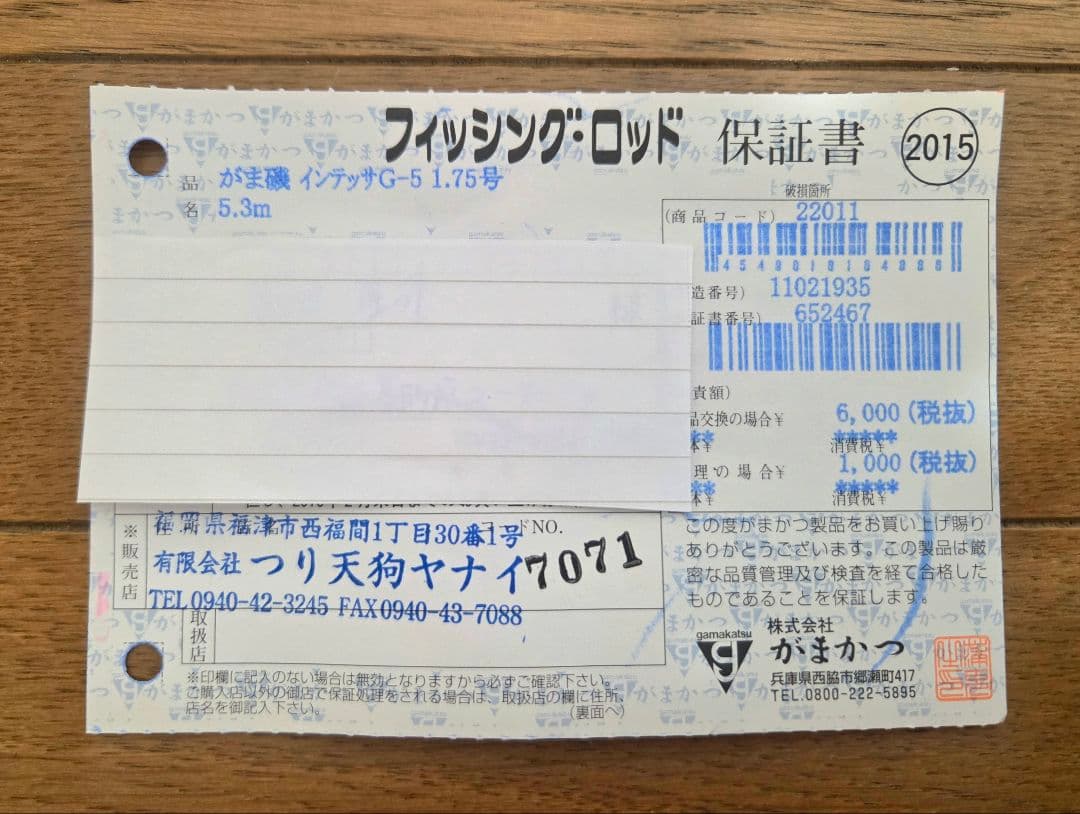 フィッシング・ロッド 保証書 2015
品名 がま磯 インテッサG-5 1.75号
5.3m
破損箇所
(商品コード) 22011
造番号) 11021935
証書番号) 652467
責額)
品交換の場合¥ 6,000(税抜)
** 体¥ 消費税¥ *****
理の場合¥ 1,000(税抜)
** 体¥ 消費税¥ *****
※販売店
福岡県福津市西福間1丁目30番1号
NO.
有限会社 つり天狗ヤナイ 7071
TEL0940-42-3245 FAX0940-43-7088
取扱店
※印欄に記入のない場合は無効となりますから必ずご確認下さい。
ご購入店以外の御店で保証処理をされる場合は、取扱店の欄に住所、
店名を御記入下さい。
(裏面へ)
この度がまかつ製品をお買い上げ賜り
ありがとうございます。この製品は厳
密な品質管理及び検査を経て合格した
ものであることを保証します。
gamakatsu
株式会社
がまかつ
兵庫県西脇市郷瀬町417
TEL.0800-222-5895